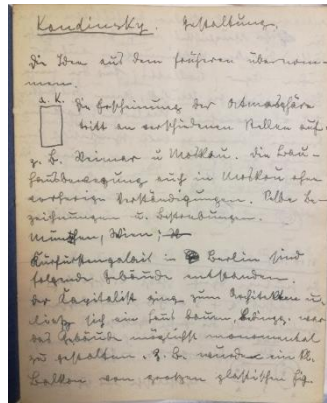 Kandinsky. Gestaltung.
Die Idee aus dem früheren übernom-
men.
a. K. Die Erscheinung der Atmosphäre
tritt an verschiedenen Stellen auf.
z. B. Weimar u Moskau. Die Bau-
hausbewegung auch in Moskau ohne
vorherige Verständigungen. Selbe Be-
zeichnungen u. Bestrebungen.
München, Wien,
Kurfürstenpalais in Berlin sind
folgende Gebäude entstanden.
Der Kapitalist ging zum Architekten u.
ließ sich ein Haus bauen. Beding. war
das Gebäude möglichst monumental
zu gestalten. z. B. wurden ein kl.
Balkon von großen plastischen Fig.